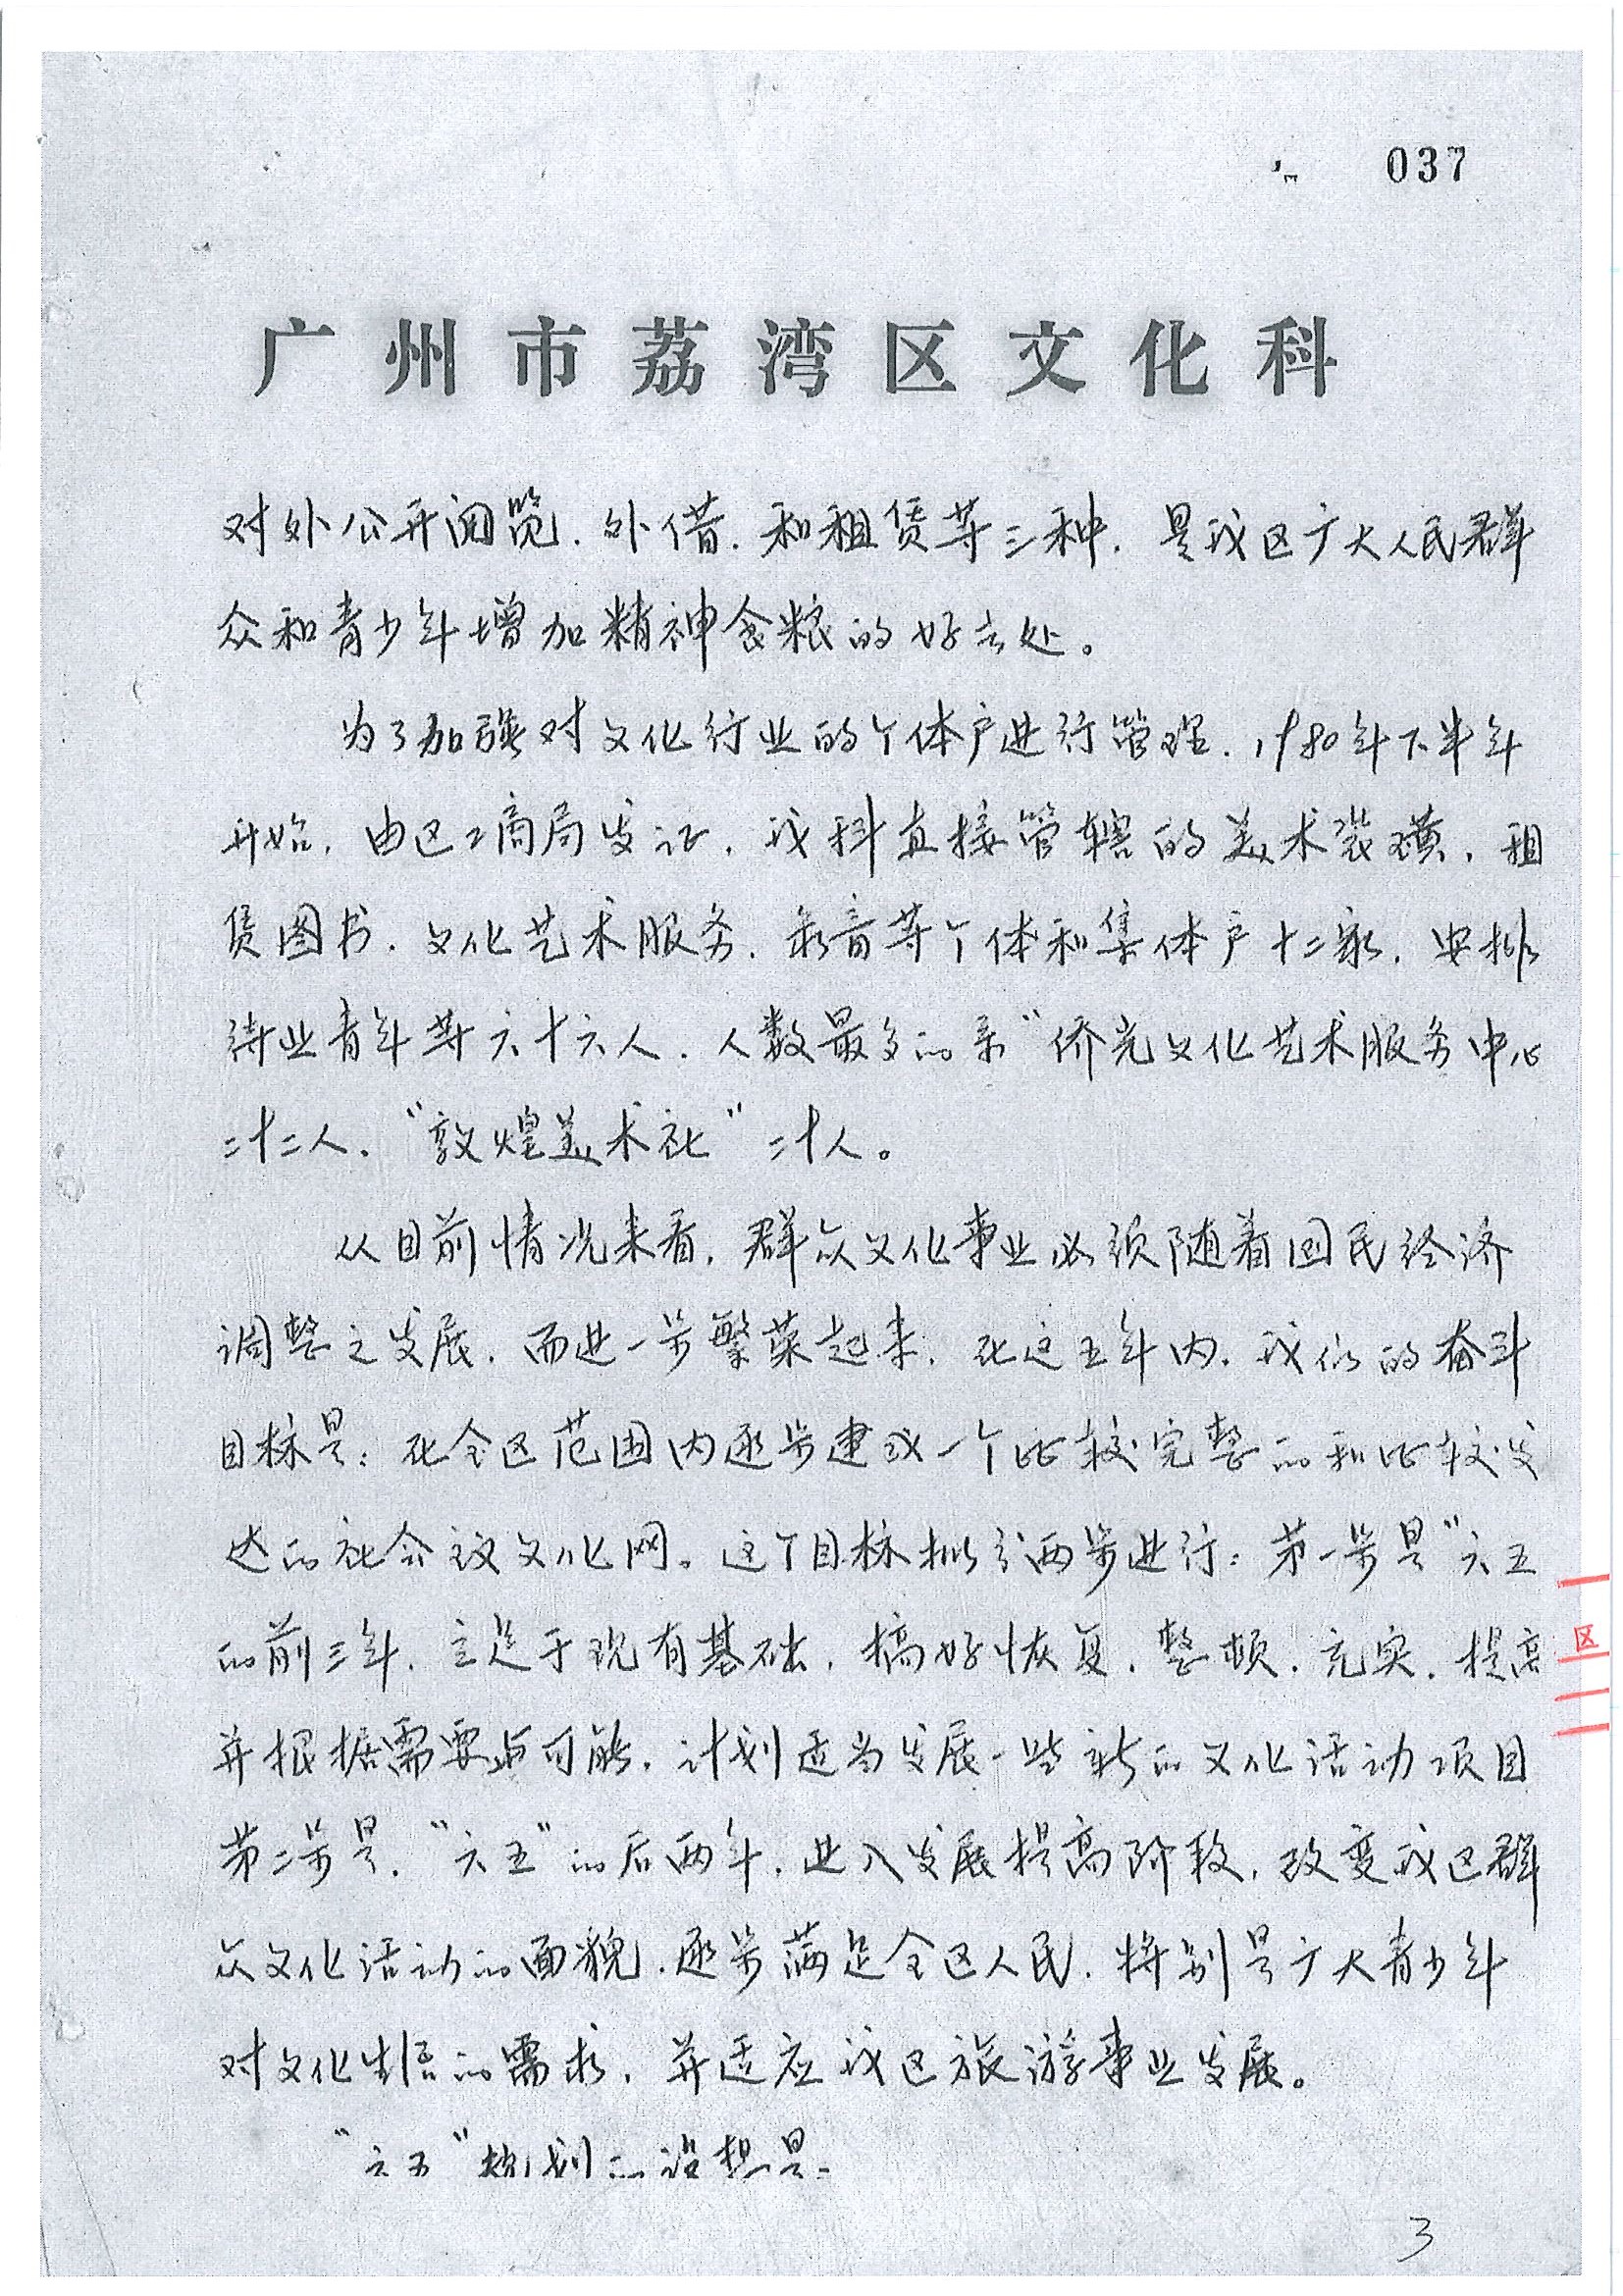 037
广州市荔湾区文化科
对外公开阅览、外借、和租赁等三种，是我区广大人民群
众和青少年增加精神食粮的好去处。
为了加强对文化行业的个体户进行管理，1980年下半年
开始，由区工商局发证，我科直接管辖的美术装璜，租
赁图书、文化艺术服务、录音等个体和集体户十二家，安排
待业青年等六十六人，人数最多的系“侨光文化艺术服务中心
二十二人，“敦煌美术社”二十人。
从目前情况来看，群众文化事业必须随着国民经济
调整之发展，而进一步繁荣起来，在这五年内，我们的奋斗
目标是：在全区范围内逐步建成一个比较完整的和比较发
达的社会主义文化网。这个目标拟分两步进行：第一步是“六五
的前三年，立足于现有基础，搞好恢复、整顿、充实、提高
区
并根据需要与可能，计划适当发展一些新的文化活动项目
第二步是，“六五”的后两年，进入发展提高阶段，改变我区群
众文化活动的面貌，逐步满足全区人民，特别是广大青少年
对文化生活的需求，并适应我区旅游事业发展。
“六五”规划的设想是：
3